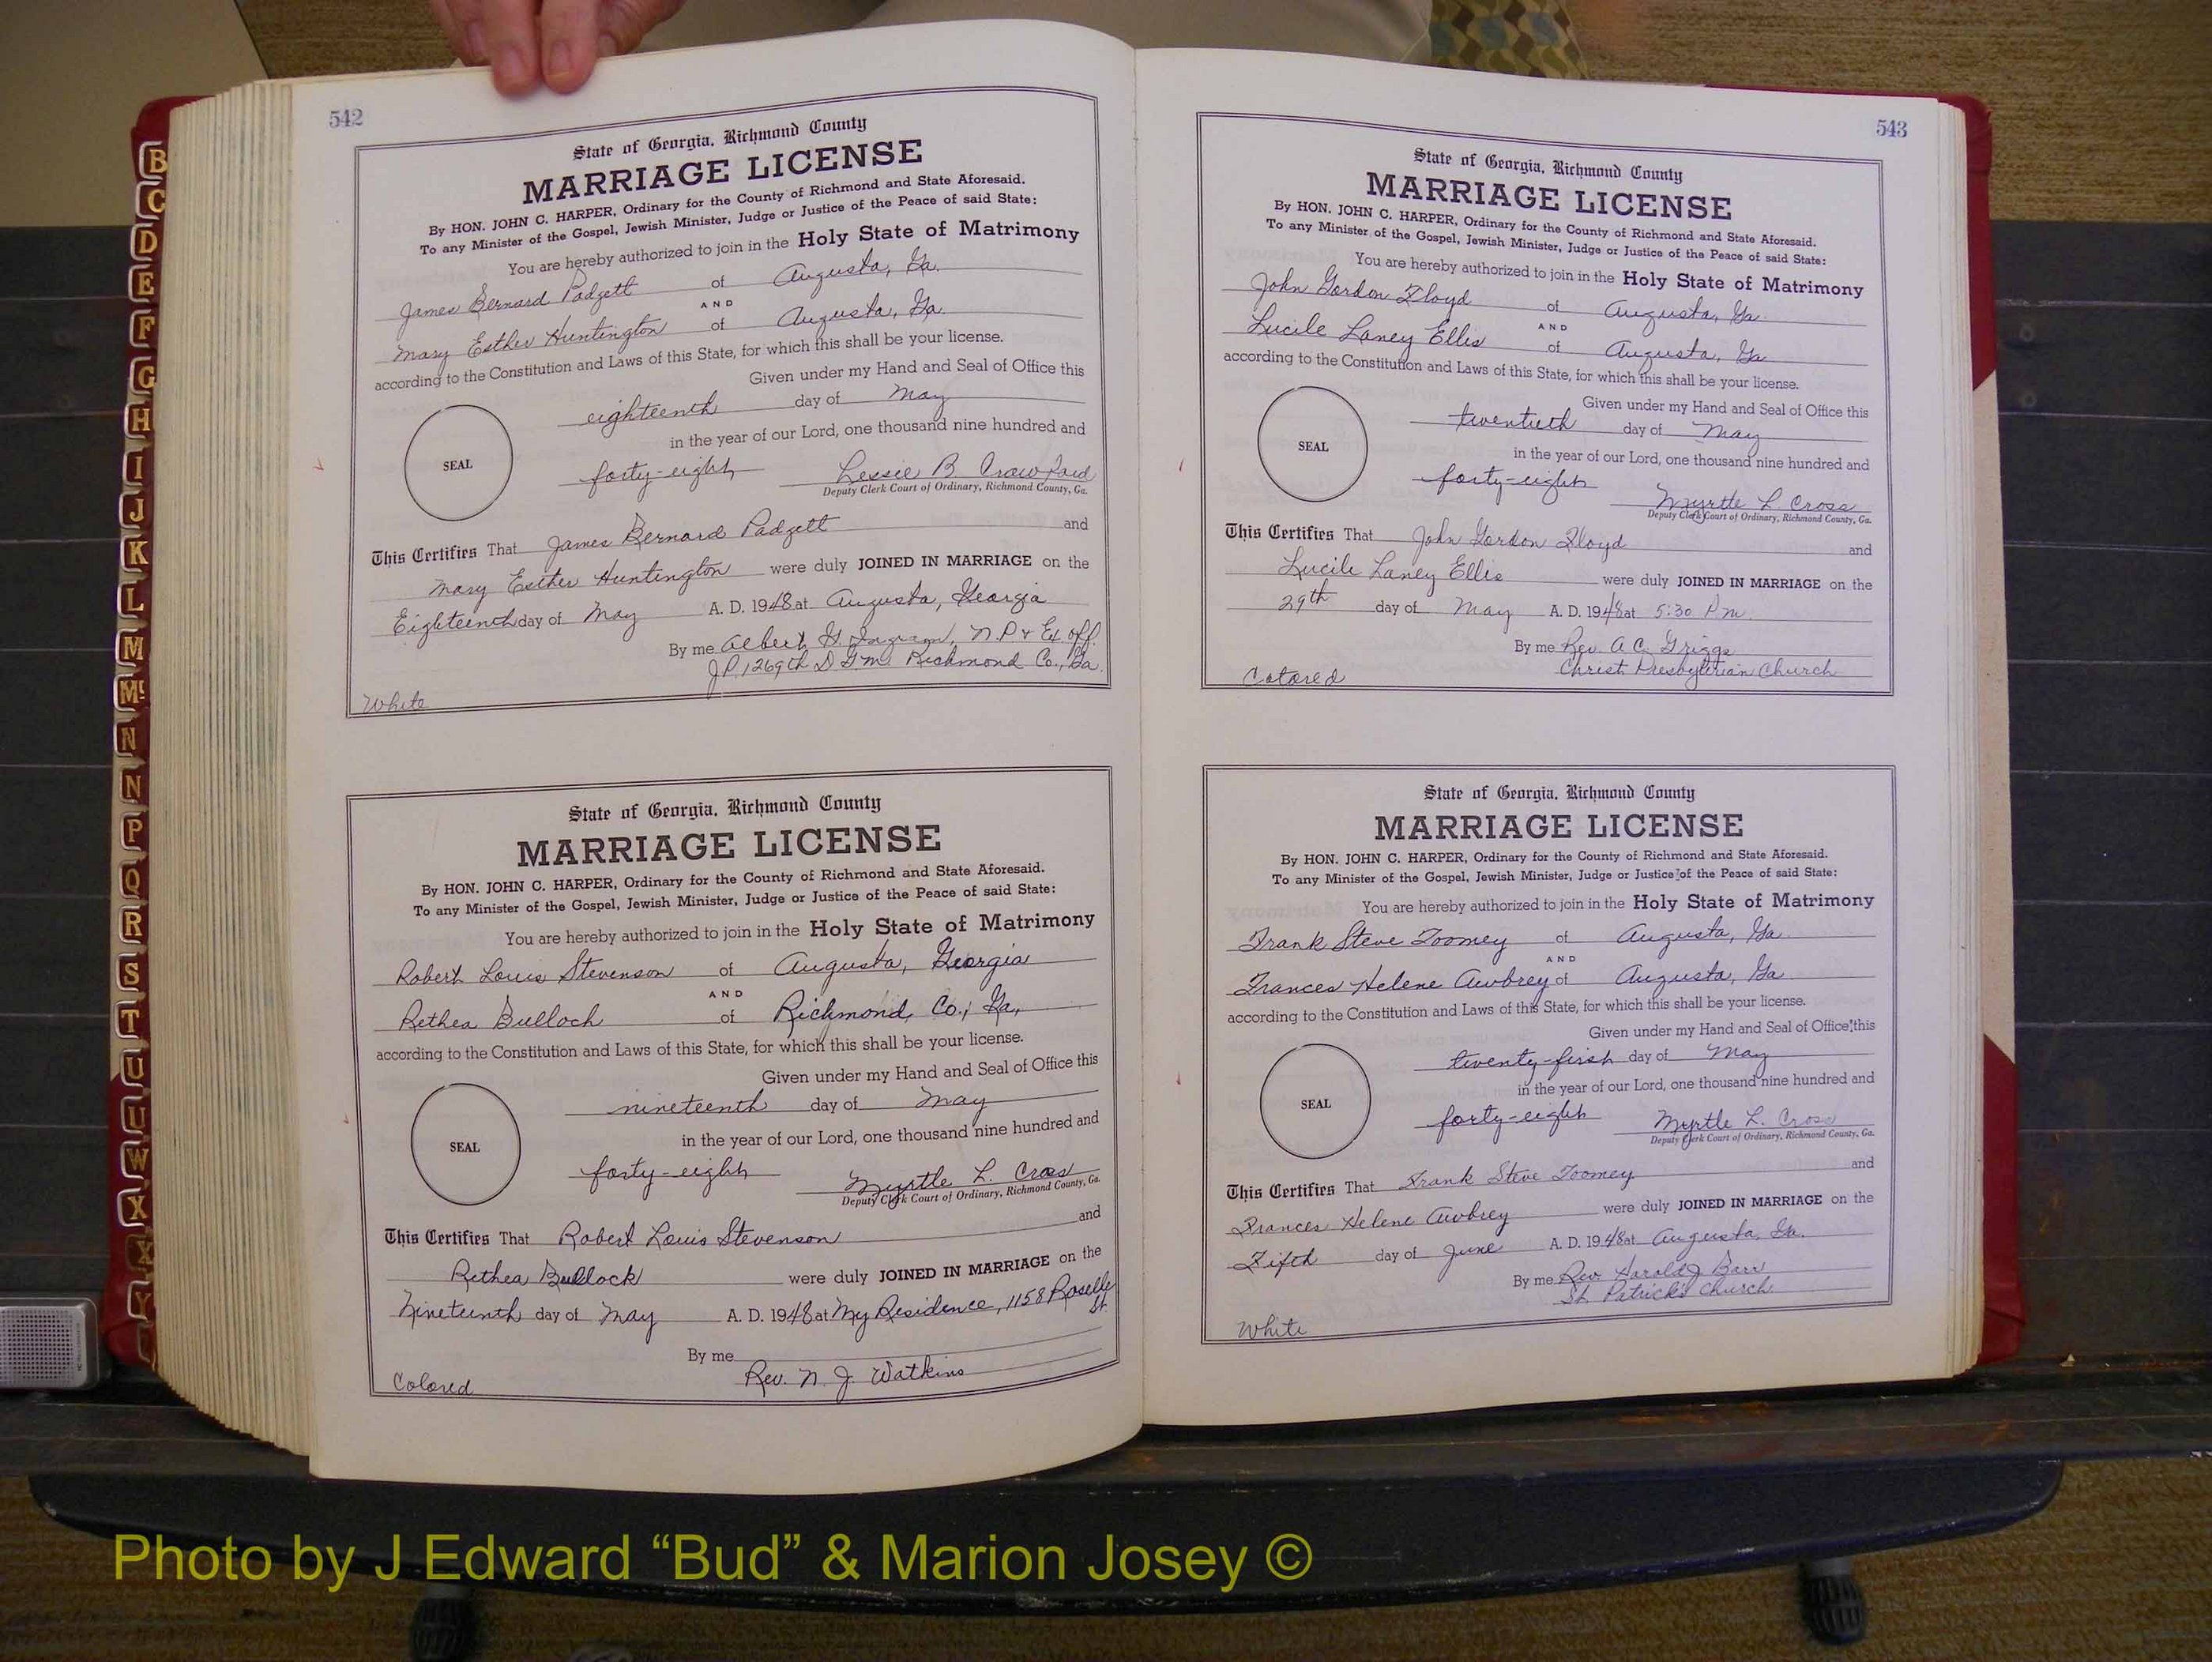 542
State of Georgia, Richmond County
MARRIAGE LICENSE
By HON. JOHN C. HARPER, Ordinary for the County of Richmond and State Aforesaid.
To any Minister of the Gospel, Jewish Minister, Judge or Justice of the Peace of said State:
You are hereby authorized to join in the Holy State of Matrimony
James Bernard Padgett of Augusta, Ga.
AND
Mary Esther Huntington of Augusta, Ga.
according to the Constitution and Laws of this State, for which this shall be your license.
Given under my Hand and Seal of Office this
eighteenth day of May
in the year of our Lord, one thousand nine hundred and
SEAL
forty-eight Lessie B. Crawford
Deputy Clerk Court of Ordinary, Richmond County, Ga.
This Certifies That James Bernard Padgett and
Mary Esther Huntington were duly JOINED IN MARRIAGE on the
Eighteenth day of May A. D. 1948 at Augusta, Georgia
By me Albert G. Ingram, N.P. & Ex off.
J.P. 1269th D G.M. Richmond Co., Ga.
White
State of Georgia, Richmond County
MARRIAGE LICENSE
By HON. JOHN C. HARPER, Ordinary for the County of Richmond and State Aforesaid.
To any Minister of the Gospel, Jewish Minister, Judge or Justice of the Peace of said State:
You are hereby authorized to join in the Holy State of Matrimony
Robert Louis Stevenson of Augusta, Georgia
AND
Rethea Bulloch of Richmond, Co., Ga,
according to the Constitution and Laws of this State, for which this shall be your license.
Given under my Hand and Seal of Office this
nineteenth day of May
in the year of our Lord, one thousand nine hundred and
SEAL
forty-eight Myrtle L. Cross
Deputy Clerk Court of Ordinary, Richmond County, Ga.
This Certifies That Robert Louis Stevenson and
Rethea Bullock were duly JOINED IN MARRIAGE on the
Nineteenth day of May A. D. 1948 at My Residence, 1158 Roselle
St.
By me
Rev. N. J. Watkins
Colored
543
State of Georgia, Richmond County
MARRIAGE LICENSE
By HON. JOHN C. HARPER, Ordinary for the County of Richmond and State Aforesaid.
To any Minister of the Gospel, Jewish Minister, Judge or Justice of the Peace of said State:
You are hereby authorized to join in the Holy State of Matrimony
John Gordon Floyd of Augusta, Ga.
AND
Lucile Laney Ellis of Augusta, Ga
according to the Constitution and Laws of this State, for which this shall be your license.
Given under my Hand and Seal of Office this
twentieth day of May
in the year of our Lord, one thousand nine hundred and
SEAL
forty-eight
Myrtle L Cross
Deputy Clerk Court of Ordinary, Richmond County, Ga.
This Certifies That John Gordon Floyd and
Lucile Laney Ellis were duly JOINED IN MARRIAGE on the
29th day of May A. D. 1948 at 5:30 P.m.
By me Rev. A C. Griggs
Christ Presbyterian Church
Colored
State of Georgia, Richmond County
MARRIAGE LICENSE
By HON. JOHN C. HARPER, Ordinary for the County of Richmond and State Aforesaid.
To any Minister of the Gospel, Jewish Minister, Judge or Justice of the Peace of said State:
You are hereby authorized to join in the Holy State of Matrimony
Frank Steve Toomey of Augusta, Ga.
AND
Frances Helene Awbrey of Augusta, Ga
according to the Constitution and Laws of this State, for which this shall be your license.
Given under my Hand and Seal of Office this
twenty-first day of May
in the year of our Lord, one thousand nine hundred and
SEAL
forty-eight Myrtle L. Cross
Deputy Clerk Court of Ordinary, Richmond County, Ga.
This Certifies That Frank Steve Toomey and
Frances Helene Awbrey were duly JOINED IN MARRIAGE on the
Fifth day of June A. D. 1948 at Augusta, Ga.
By me Rev. Harold J Barr
St. Patrick's Church
White
B
C
D
E
F
G
H
I
J
K
L
M
Mc
N
N
P
Q
R
S
T
U
U
W
X
X
Y
Photo by J Edward “Bud” & Marion Josey ©